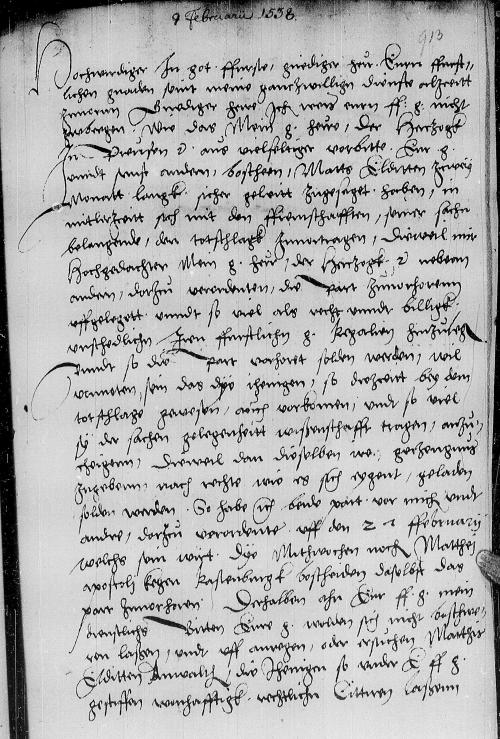 9 Februarii 1538.
913
Hochwirdiger In got ffurste, gnediger her. Eurn ffurst,
lichen gnaden seint meine gantzwilligen dienste altzeit
zuuorenn Gnediger herre Ich weis eurn ff. g. nicht
zubergen. Wie das Mein g. herre, der Hertzogk
In Preusen ꝛc. aus vielfeltiger vorbitte. Eur g.
vnndt sunst andern, botschern, Matts Elditten zwey
Monatt langk. sicher geleitt zugesaget haben, in
mitlerzeit sich mit den ffreuntschafften, seiner sachn
belangende, den totschlagk zuuortragen, dieweil mir
Hochgedachter Mein g. herr, der Hertzogk ꝛc nebenn
andern, dorzu verordenten, die part zuuorhorenn
vffgelegett vnndt so viel als recht vnndt billigk.
vnschedlichn Iren ffurstlichn g. Regalien
vnndt so die part vorhoret solden werden, wil
vonnoten sein das dye ihenigen, so dieszeitt bey dem
totschlage gewesen, auch vorkomen, vndt so viel
sy der sachen gelegenheitt wissenschafft tragen, anzu,
zeigenn, dieweil dan dieselben zu gezeugnus
zugebenn, nach rechte wie es sich eygent, geladen
solden werden. So habe ich beide part vor mich vndt
andre, dorzu verordente vff den 27 ffebruarij
welchs sein wirt. dye Mithwochen nach Matthei
apostoli kegen Rastenburgk bescheiden daselbst das
part zuuorhoren. Derhalben ahn Eur ff. g. mein
dienstlichs Bitten Eure g. wolden sich nicht beschwe,
ren lassen, vndt vff anregen, oder ersuchen Matthis
Elditten Anwaldt, die Ihenigen so vnder E ff g.
gesessen wonhafftigk. rechtlichn Cittiren lassenn